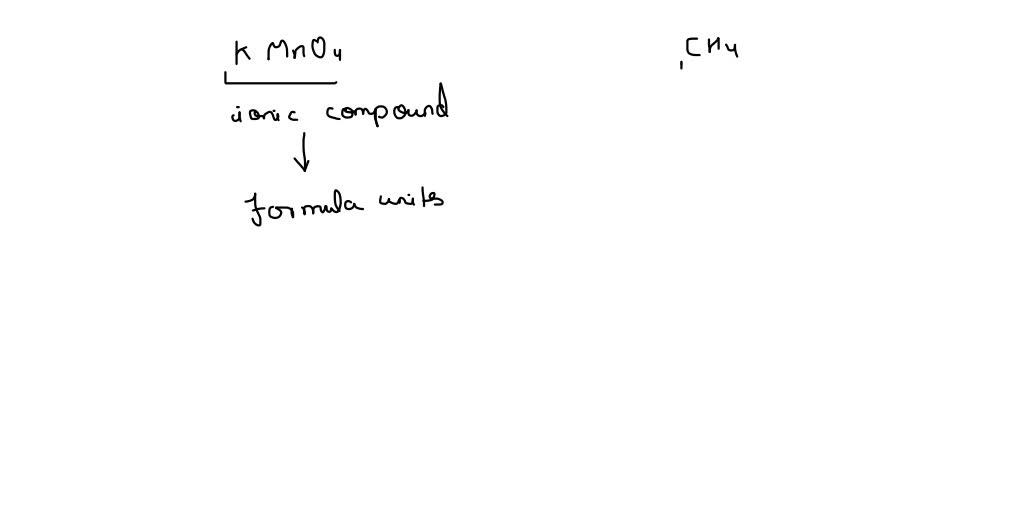 K MnO4
CH4
ionic compound
↓
formula units